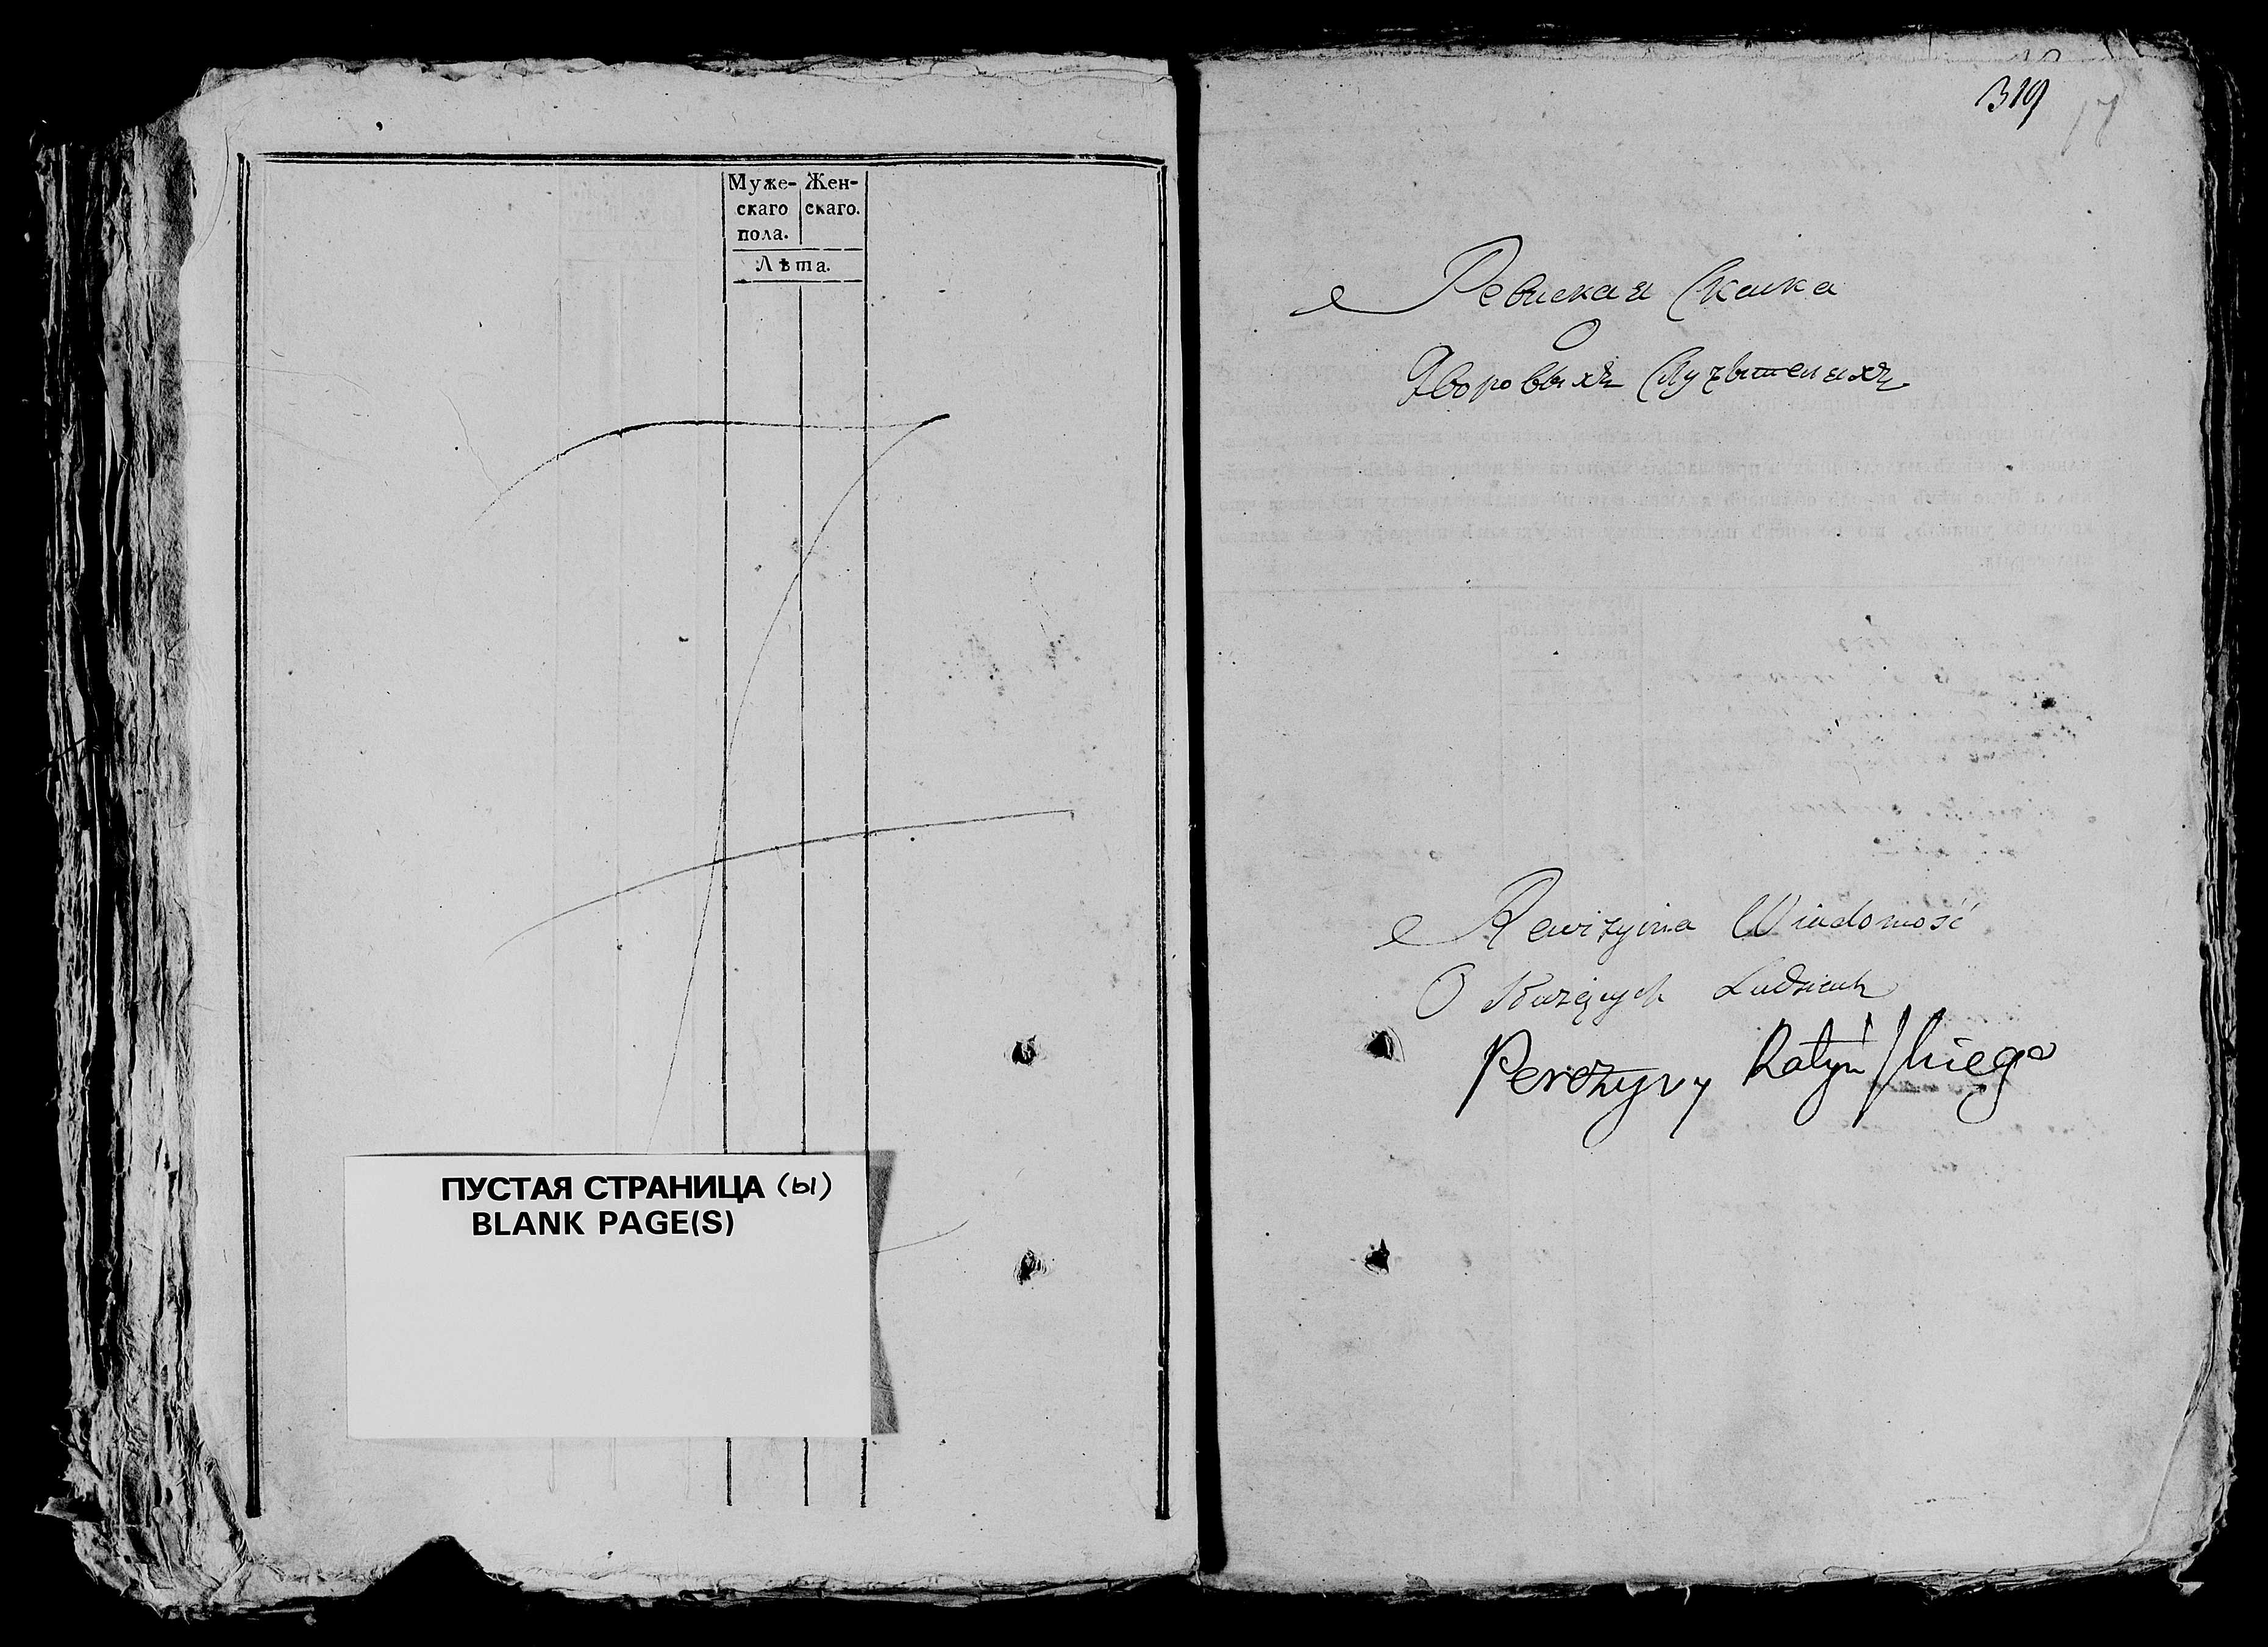 Муже- Жен-
скаго скаго.
пола.
Лѣта.
ПУСТАЯ СТРАНИЦА (ы)
BLANK PAGE(S)
319
17
Ревиская Скаска
О
Дворовыхъ Служителяхъ
Rewizyina Wiadomość
O Służących Ludziach
Ratyńskiego